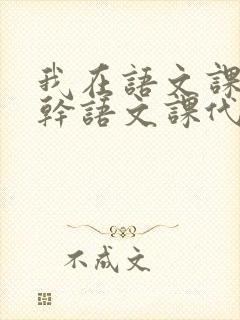 我在語文課
幹語文課代
不成文